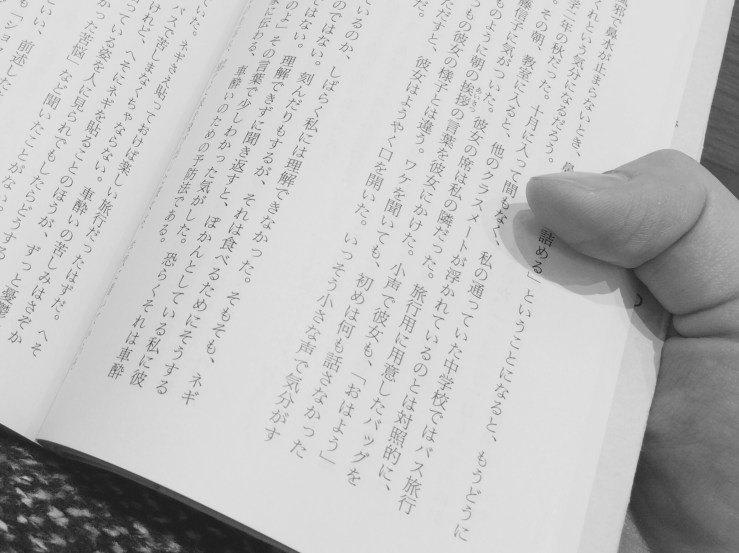 風邪で鼻水が止まらないとき、鼻
詰める」ということになると、もうどうに
くれという気分になるだろう。
学二年の秋だった。十月に入って間もなく、私の通っていた中学校ではバス旅行
。その朝、教室に入ると、他のクラスメートが浮かれているのとは対照的に、
藤信子に気がついた。彼女の席は私の隣だった。旅行用に用意したバッグを
ものように朝の挨拶の言葉を彼女にかけた。小声で彼女も、「おはよう」
もの彼女の様子とは違う。ワケを聞いても、初めは何も話さなかった
ただすと、彼女はようやく口を開いた。いっそう小さな声で気分がす
だ。
ているのか、しばらく私には理解できなかった。そもそも、ネギ
のではない。刻んだりもするが、それは食べるためにそうする
ではない。理解できずに聞き返すと、ぽかんとしている私に彼
のよ」その言葉で少しわかった気がした。恐らくそれは車酔
に伝わる、車酔いのための予防法である。
ていた。ネギさえ貼っておけば楽しい旅行だったはずだ。へそ
バスで苦しまなくちゃならない。車酔いの苦しみはさぞか
けれど、へそにネギを貼ることのほうが、ずっと憂鬱
っている姿を人に見られでもしたらどうする
た苦悩」など聞いたことがない。
とい、前述した
も「ショ